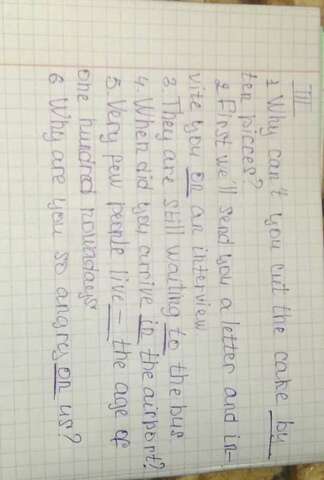 III
1 Why can't you cut the cake by
ten picces?
2 First we'll send you a letter and in-
vite you on an interview
3. They are still waiting to the bus
4. When did you arrive in the airport?
5. Very few people live — the age of
one hundred nowadays
6 Why are you so angres on us?